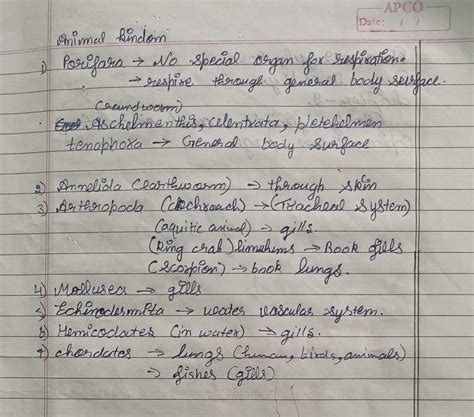 APCO
Date: / /
Animal kindom
1) Porifara → No special organ for respiration.
→ respire through general body surface.
(roundworm)
Aschelmenthis, celentrata, pletehelmen
tenophoxa → General body surface
2) Annelida (Earthworm) → through skin
3) Arthropoda (cockroach) → (Tracheal system)
(aquitic animal) → gills
(King crab) limuhums → Book gills
(Scorpion) → book lungs.
4) Mollusca → gills
5) Echinodermita → water vascular system.
6) Hemicodates (in water) → gills.
7) chordates → lungs (human, birds, animals)
→ fishes (gills)